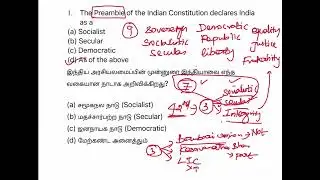 1. The Preamble of the Indian Constitution declares India as a
(a) Socialist
(b) Secular
(c) Democratic
(d) All of the above
9 Sovereign Democratic equality
Socialistic Republic Justice
Secular liberty Fraternity
இந்திய அரசியலமைப்பின் முன்னுரை இந்தியாவை எந்த வகையான நாடாக அறிவிக்கிறது?
(a) சமூகநல நாடு (Socialist)
(b) மதச்சார்பற்ற நாடு (Secular)
(c) ஜனநாயக நாடு (Democratic)
(d) மேற்கண்ட அனைத்தும்
7
42nd 3
Socialistic
Secular
Integrity
3
Not
LIC